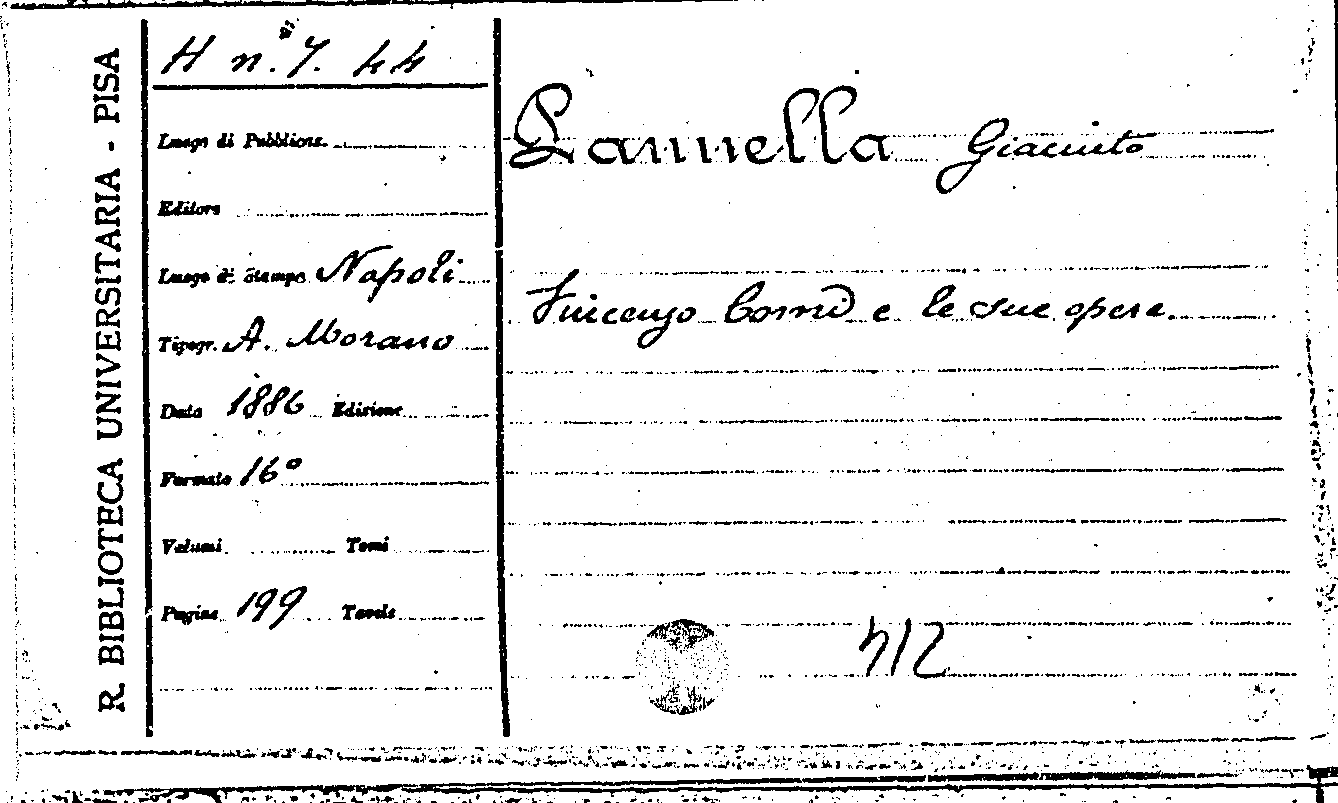 R. BIBLIOTECA UNIVERSITARIA - PISA
H n. 7. 44
Luogo di Pubblicaz.
Editore
Luogo di stampa Napoli
Tipogr. A. Morano
Data 1886 Edizione
Formato 16°
Volumi Tomi
Pagine 199 Tavole
Pannella Giacinto
Vincenzo Comi e le sue opere.